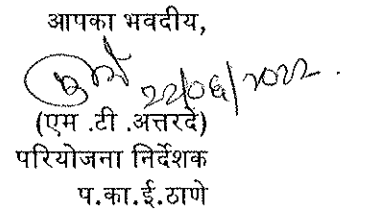 आपका भवदीय,
22/06/2022.
(एम .टी .अत्तरदे)
परियोजना निर्देशक
प.का.ई.ठाणे